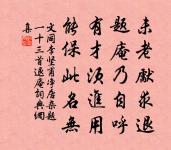 未老獻求退
題庵乃自呼
有才須進用
能保此名無
文同李堅甫淨居雜題
一十三首退庵詞典網
集